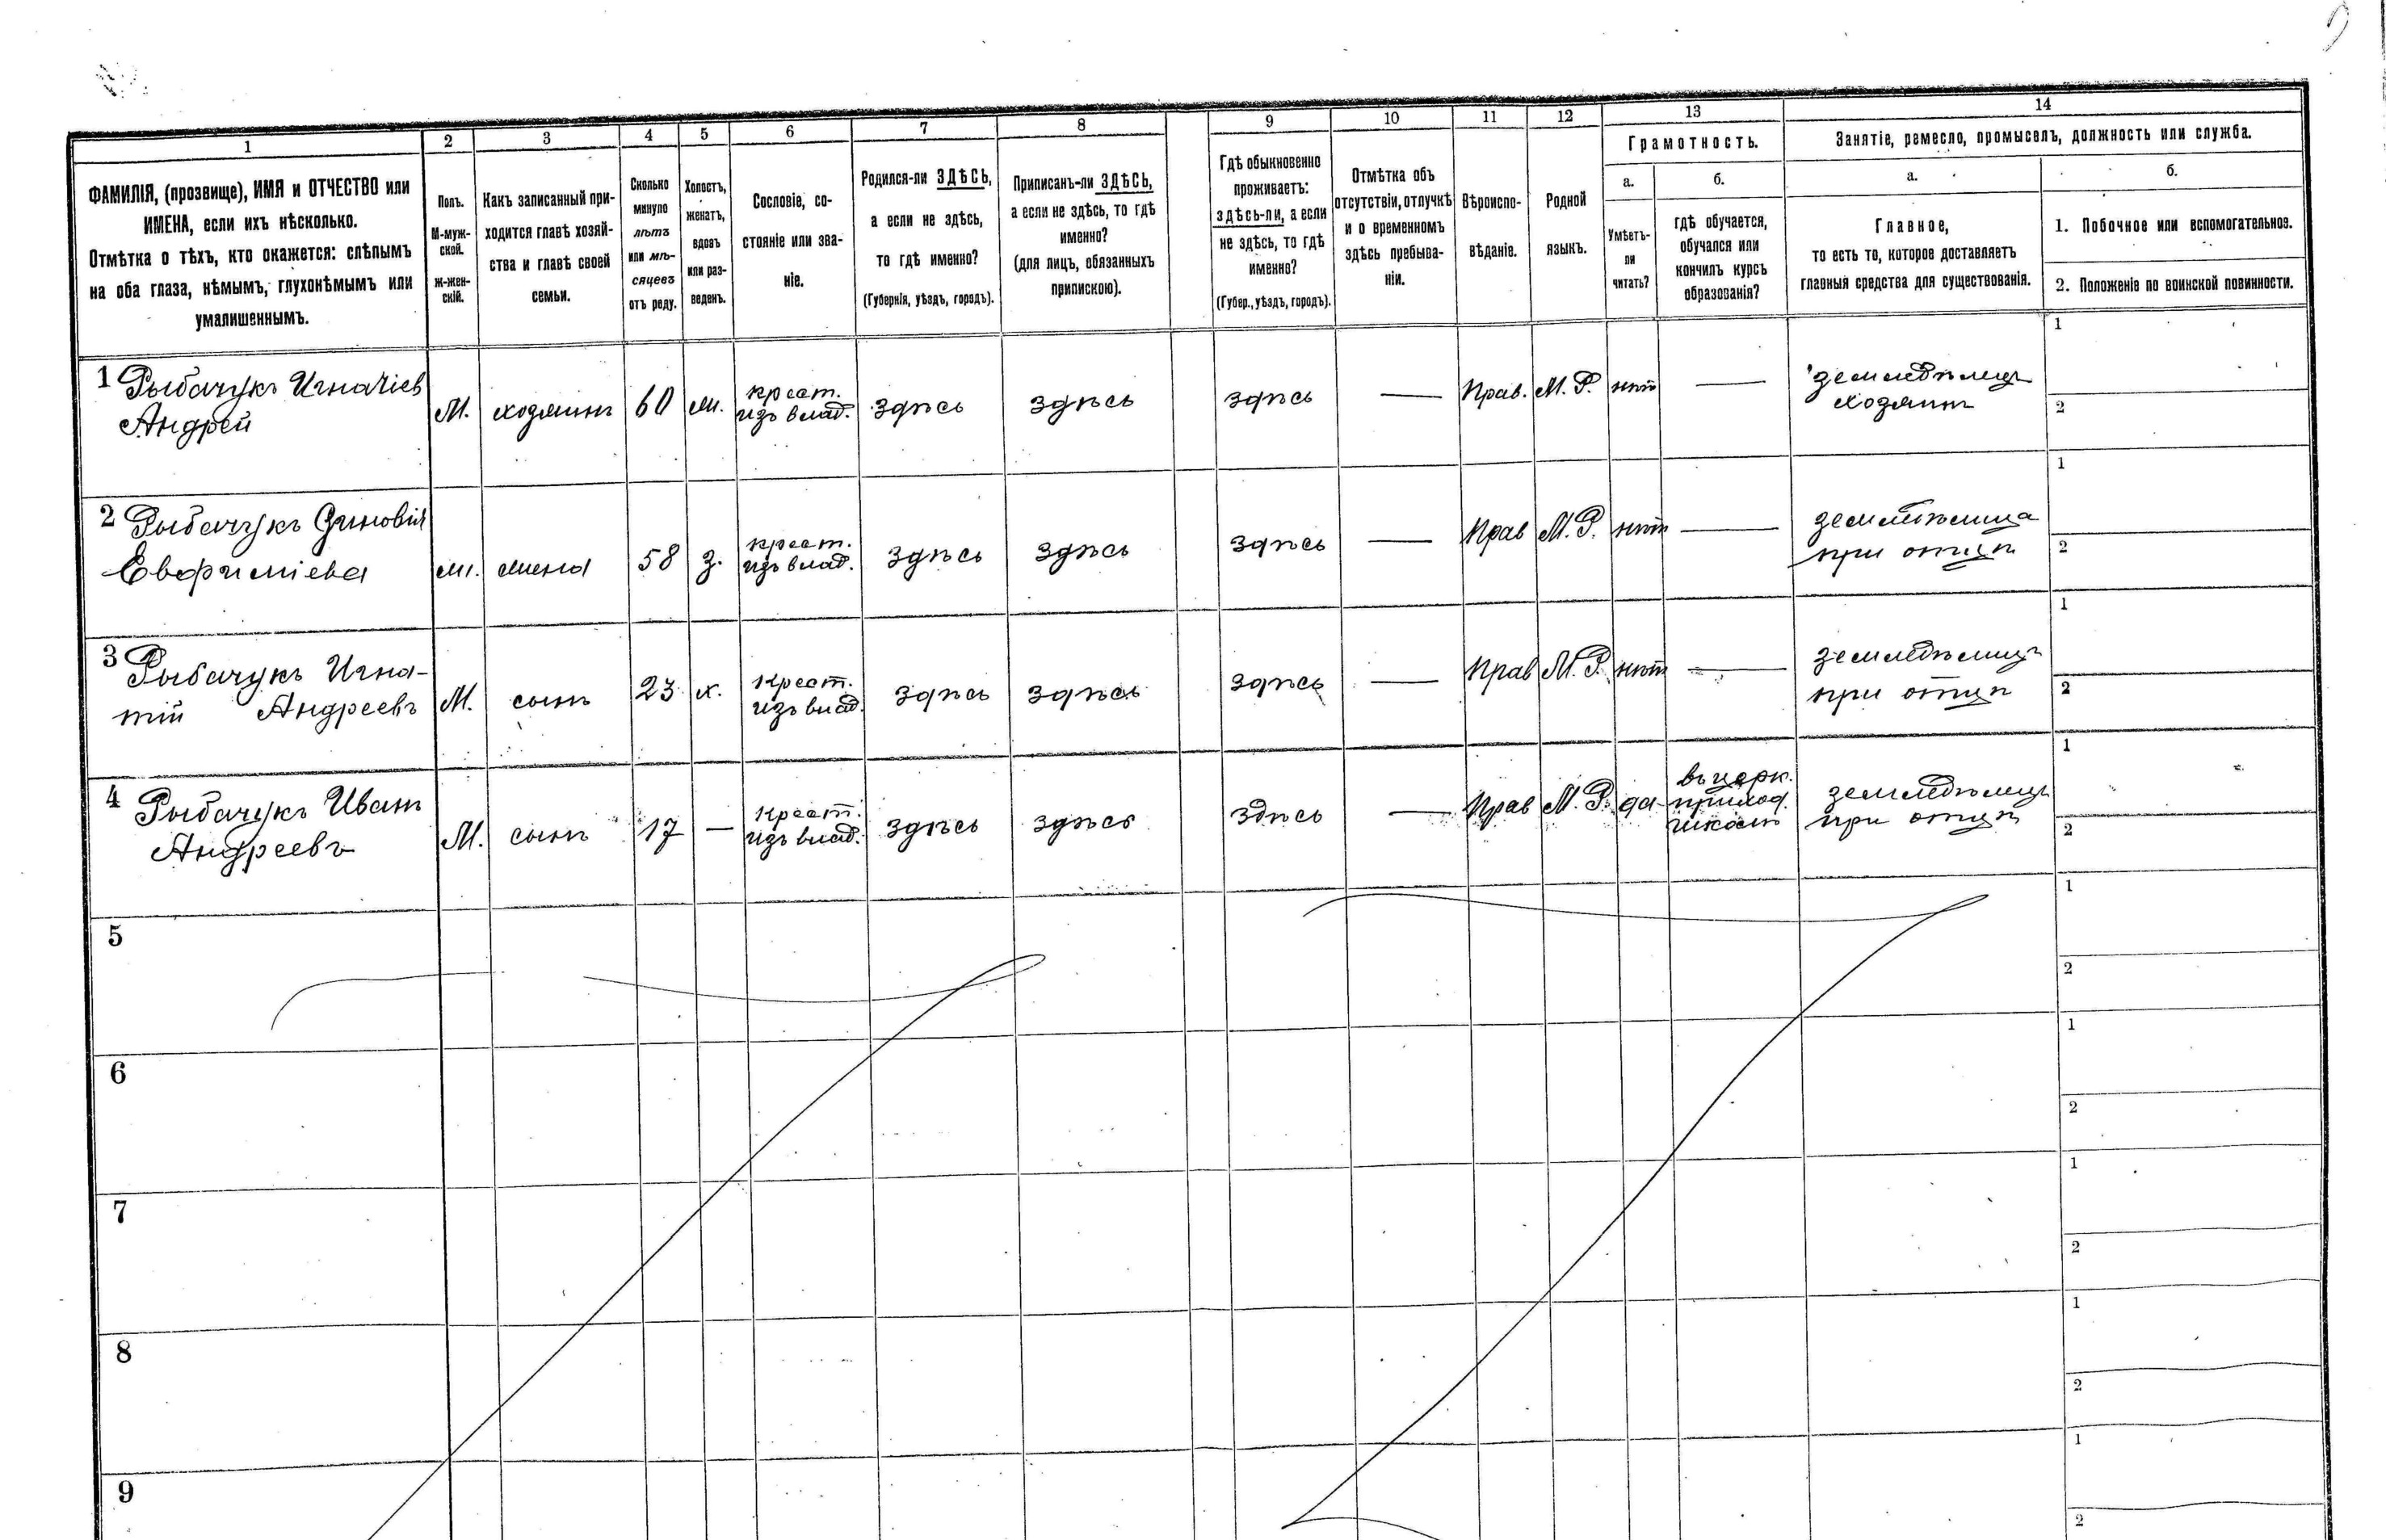 1 2 3 4 5 6 7 8 9 10 11 12 13 14
ФАМИЛІЯ, (прозвище), ИМЯ и ОТЧЕСТВО или
ИМЕНА, если ихъ нѣсколько.
Отмѣтка о тѣхъ, кто окажется: слѣпымъ
на оба глаза, нѣмымъ, глухонѣмымъ или
умалишеннымъ.
Полъ.
М-муж-
ской.
Ж-жен-
скій.
Какъ записанный при-
ходится главѣ хозяй-
ства и главѣ своей
семьи.
Сколько
минуло
лѣтъ
или мѣ-
сяцевъ
отъ роду.
Холостъ,
женатъ,
вдовъ
или раз-
веденъ.
Сословіе, со-
стояніе или зва-
ніе.
Родился-ли ЗДѢСЬ,
а если не здѣсь,
то гдѣ именно?
(Губернія, уѣздъ, городъ).
Приписанъ-ли ЗДѢСЬ,
а если не здѣсь, то гдѣ
именно?
(для лицъ, обязанныхъ
припискою).
Гдѣ обыкновенно
проживаетъ:
здѣсь-ли, а если
не здѣсь, то гдѣ
именно?
(Губер., уѣздъ, городъ).
Отмѣтка объ
отсутствіи, отлучкѣ
и о временномъ
здѣсь пребыва-
ніи.
Вѣроиспо-
вѣданіе.
Родной
языкъ.
Грамотность.
а.
Умѣетъ-
ли
читать?
б.
гдѣ обучается,
обучался или
кончилъ курсъ
образованія?
Занятіе, ремесло, промыселъ, должность или служба.
а.
Главное,
то есть то, которое доставляетъ
главныя средства для существованія.
б.
1. Побочное или вспомогательное.
2. Положеніе по воинской повинности.
1 Рыбачукъ Игнатіев
Андрей
М.
хозяинъ
60
ж.
крест.
изъ влад.
здѣсь
здѣсь
здѣсь
—
Прав.
М. Р.
нѣт
—
земледѣлецъ
хозяинъ
1
2
2 Рыбачукъ Зиновія
Евфиміева
ж.
жена
58
з.
крест.
изъ влад.
здѣсь
здѣсь
здѣсь
—
Прав
М. Р.
нѣт
—
земледѣлица
при отцѣ
1
2
3 Рыбачукъ Игна-
тій Андреевъ
М.
сынъ
23
х.
крест.
изъ влад.
здѣсь
здѣсь
здѣсь
—
Прав
М. Р.
нѣт
—
земледѣлецъ
при отцѣ
1
2
4 Рыбачукъ Иванъ
Андреевъ
М.
сынъ
17
—
крест.
изъ влад.
здѣсь
здѣсь
здѣсь
—
Прав
М. Р.
да
въ церк.
приход.
школѣ
земледѣлецъ
при отцѣ
1
2
5
1
2
6
1
2
7
1
2
8
1
2
9
1
2